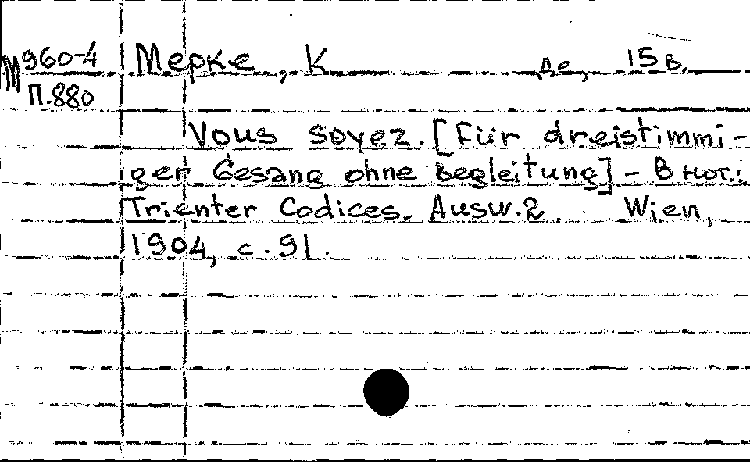 М960-4 Мерке, К де, 15 в.
П.880
Vous soyez. [Für dreistimmi-
ger Gesang ohne Begleitung] - В нот.:
Trienter Codices. Ausw. 2. Wien,
1904, с. 91.